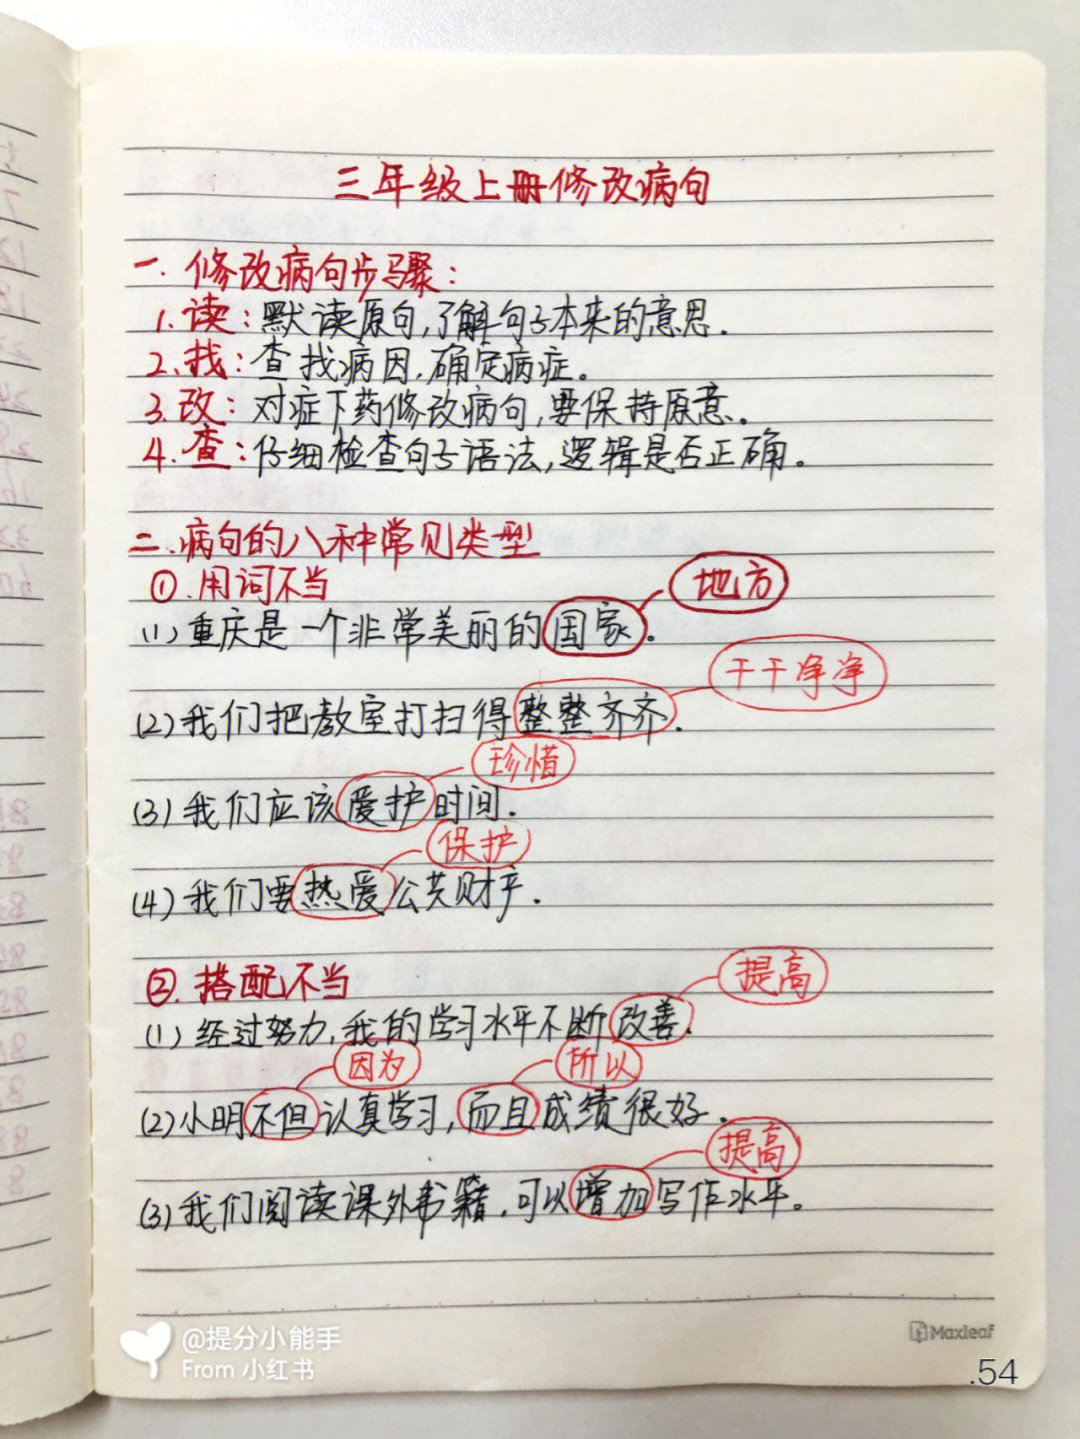 三年级上册修改病句
一.修改病句步骤:
1.读:默读原句,了解句子本来的意思.
2.找:查找病因.确定病症。
3.改:对症下药修改病句,要保持原意.
4.查:仔细检查句子语法,逻辑是否正确。
二.病句的八种常见类型
①.用词不当
地方
(1)重庆是一个非常美丽的国家。
干干净净
(2)我们把教室打扫得整整齐齐.
珍惜
(3)我们应该爱护时间.
保护
(4)我们要热爱公共财产.
②.搭配不当
提高
(1)经过努力,我的学习水平不断改善.
因为 所以
(2)小明不但认真学习,而且成绩很好.
提高
(3)我们阅读课外书籍,可以增加写作水平。
@提分小能手
From 小红书
Maxleaf
.54